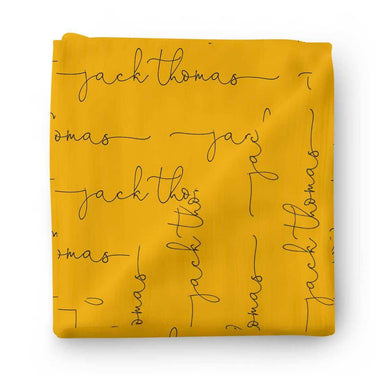 jack thomas
omas
jac
jack tho
omas
jac
jack tho
omas
jack thomas